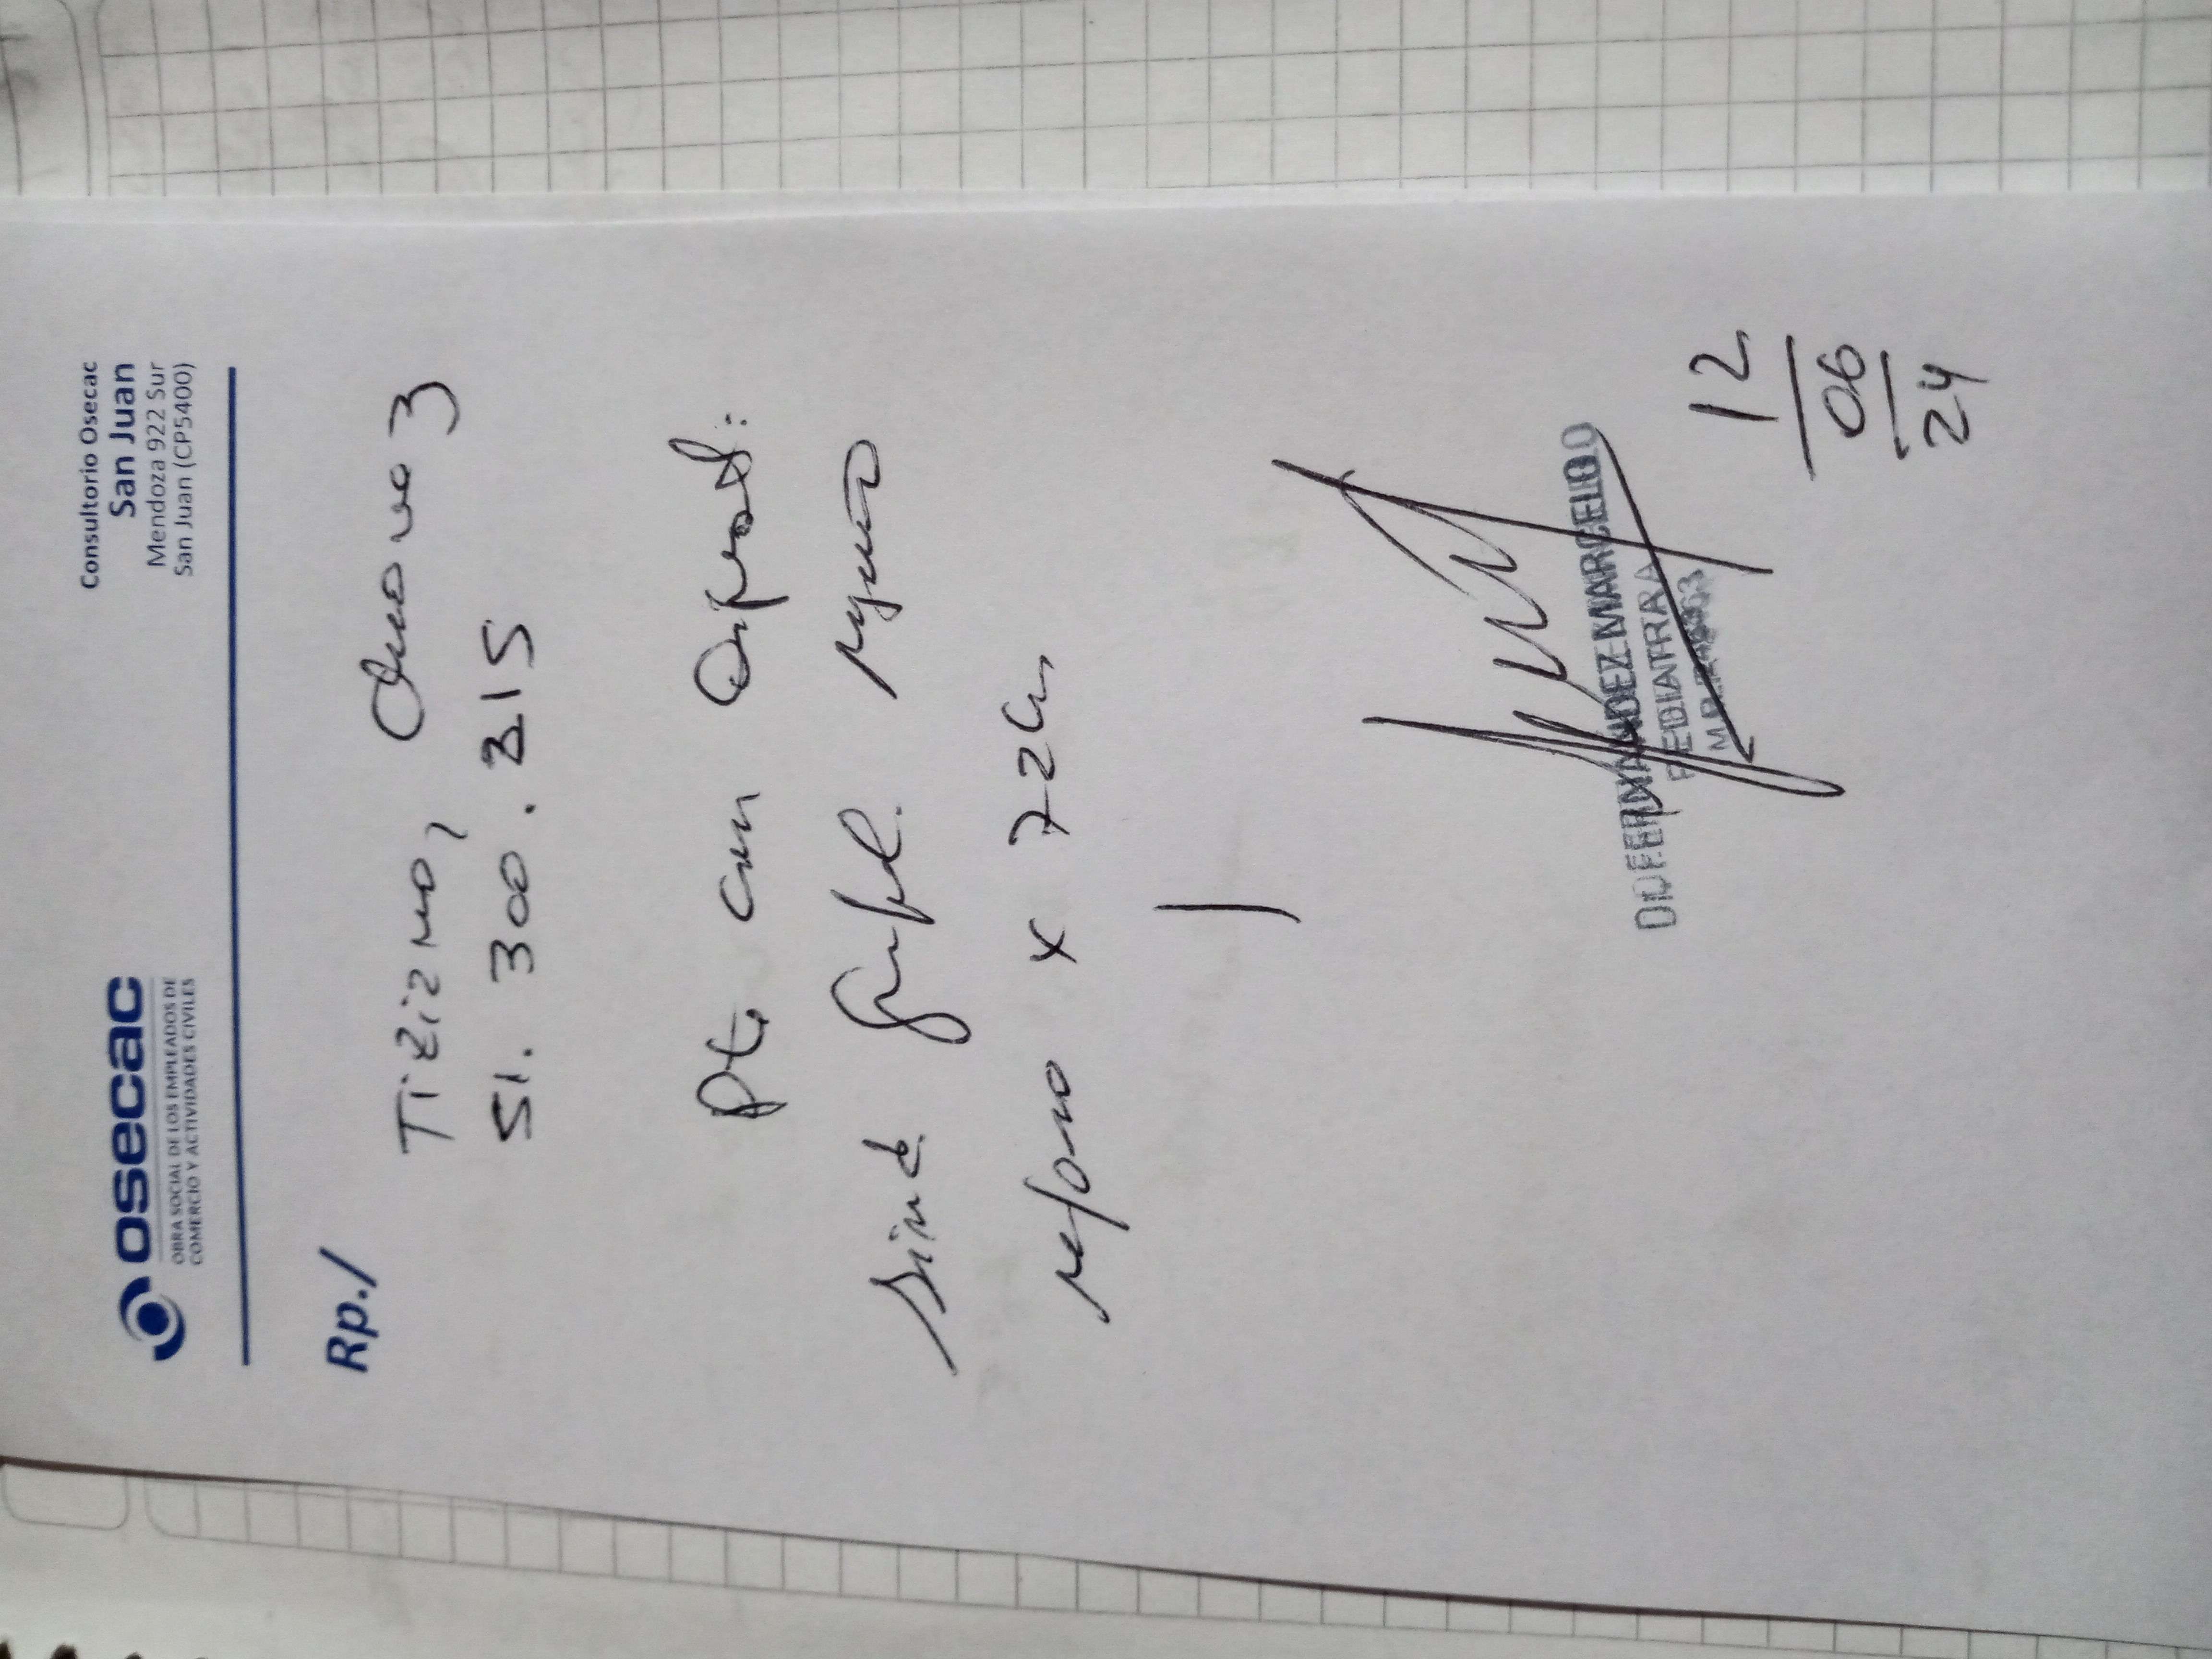 osecac
OBRA SOCIAL DE LOS EMPLEADOS DE
COMERCIO Y ACTIVIDADES CIVILES
Consultorio Osecac
San Juan
Mendoza 922 Sur
San Juan (CP5400)
Rp./
Tiziano,
51.300.315
Pte con
Sind Gripal
reposo x 72hs
FERNANDEZ MARCELO
PEDIATRA
M.P.
12
06
24